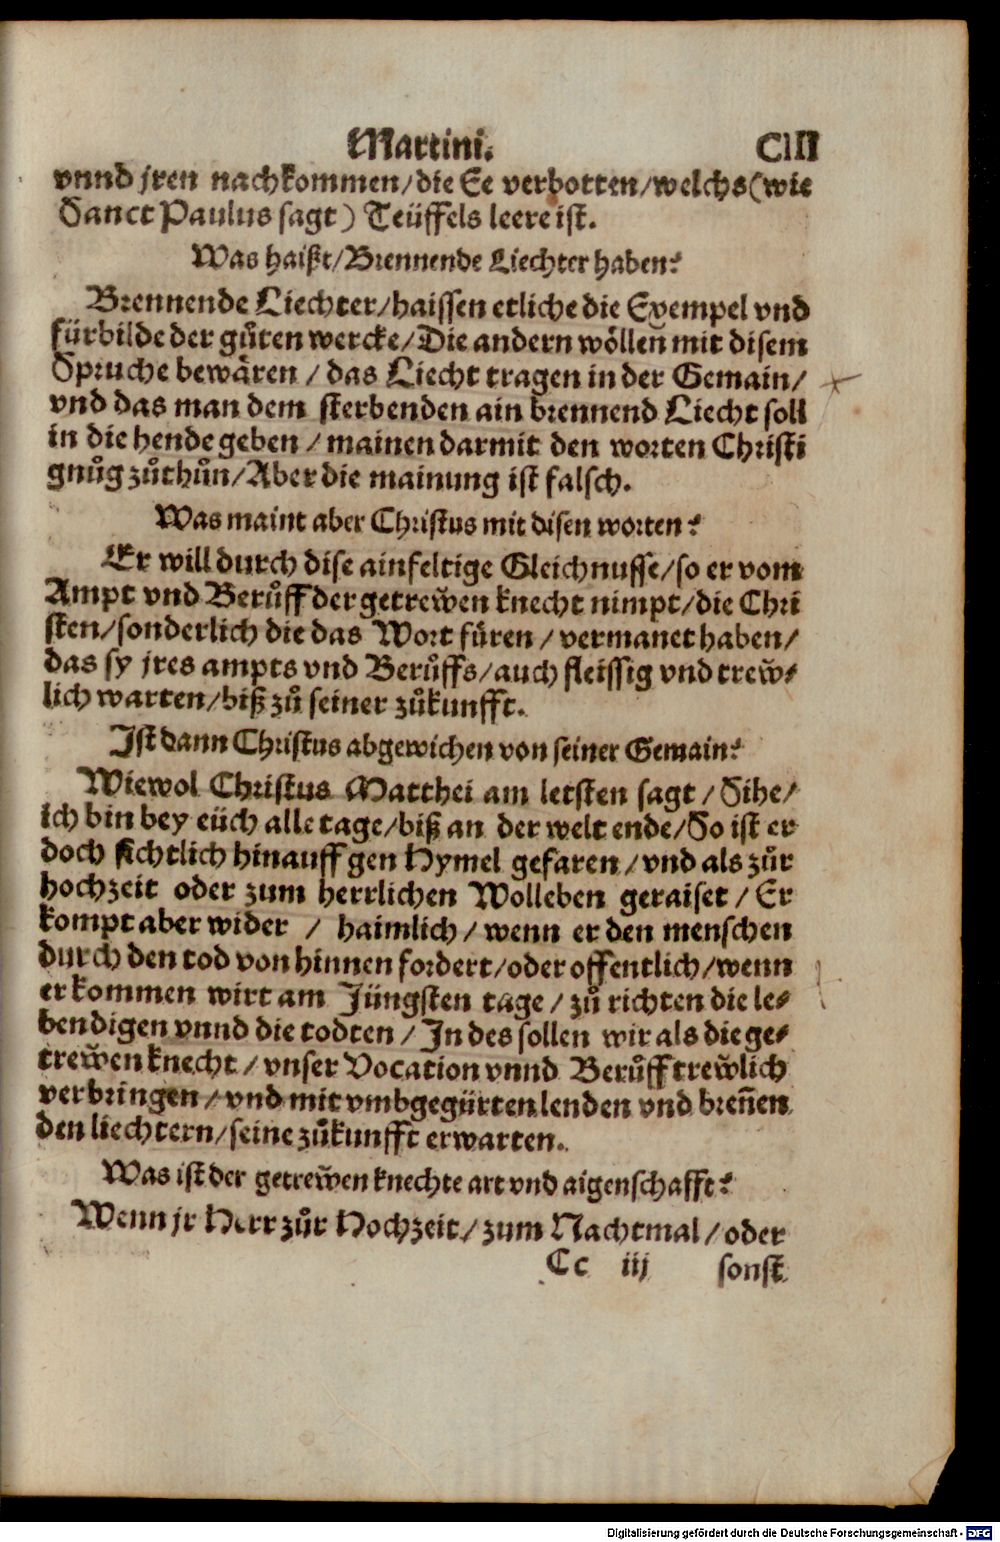 Martini. CIII
vnnd jren nachkommen/die Ee verbotten/welchs(wie
Sanct Paulus sagt) Teüffels leere ist.
Was haißt/Brennende Liechter haben?
Brennende Liechter/haissen etliche die Exempel vnd
fürbilde der gůten wercke/Die andern wöllen mit disem
Spruche bewären / das Liecht tragen in der Gemain/
vnd das man dem sterbenden ain brennend Liecht soll
in die hende geben / mainen darmit den worten Christi
gnůg zůthůn/Aber die mainung ist falsch.
Was maint aber Christus mit disen worten?
Er will durch dise ainfeltige Gleichnusse/so er vom
Ampt vnd Berůff der getrewen knecht nimpt/die Chri
sten/sonderlich die das Wort füren / vermanet haben/
das sy jres ampts vnd Berůffs/auch fleissig vnd trew⸗
lich warten/biß zů seiner zůkunfft.
Ist dann Christus abgewichen von seiner Gemain?
Wiewol Christus Matthei am letsten sagt / Sihe/
ich bin bey eüch alle tage/biß an der welt ende/So ist er
doch sichtlich hinauff gen Hymel gefaren / vnd als zůr
hochzeit oder zum herrlichen Wolleben geraiset / Er
kompt aber wider / haimlich / wenn er den menschen
durch den tod von hinnen fordert/oder offentlich/wenn
er kommen wirt am Jüngsten tage / zů richten die le⸗
bendigen vnnd die todten / In des sollen wir als die ge⸗
trewen knecht / vnser Vocation vnnd Berůff trewlich
verbringen / vnd mit vmbgegürten lenden vnd breñen
den liechtern/seine zůkunfft erwarten.
Was ist der getrewen knechte art vnd aigenschafft?
Wenn jr Herr zůr Hochzeit / zum Nachtmal / oder
Cc iij sonst
Digitalisierung gefördert durch die Deutsche Forschungsgemeinschaft - DFG